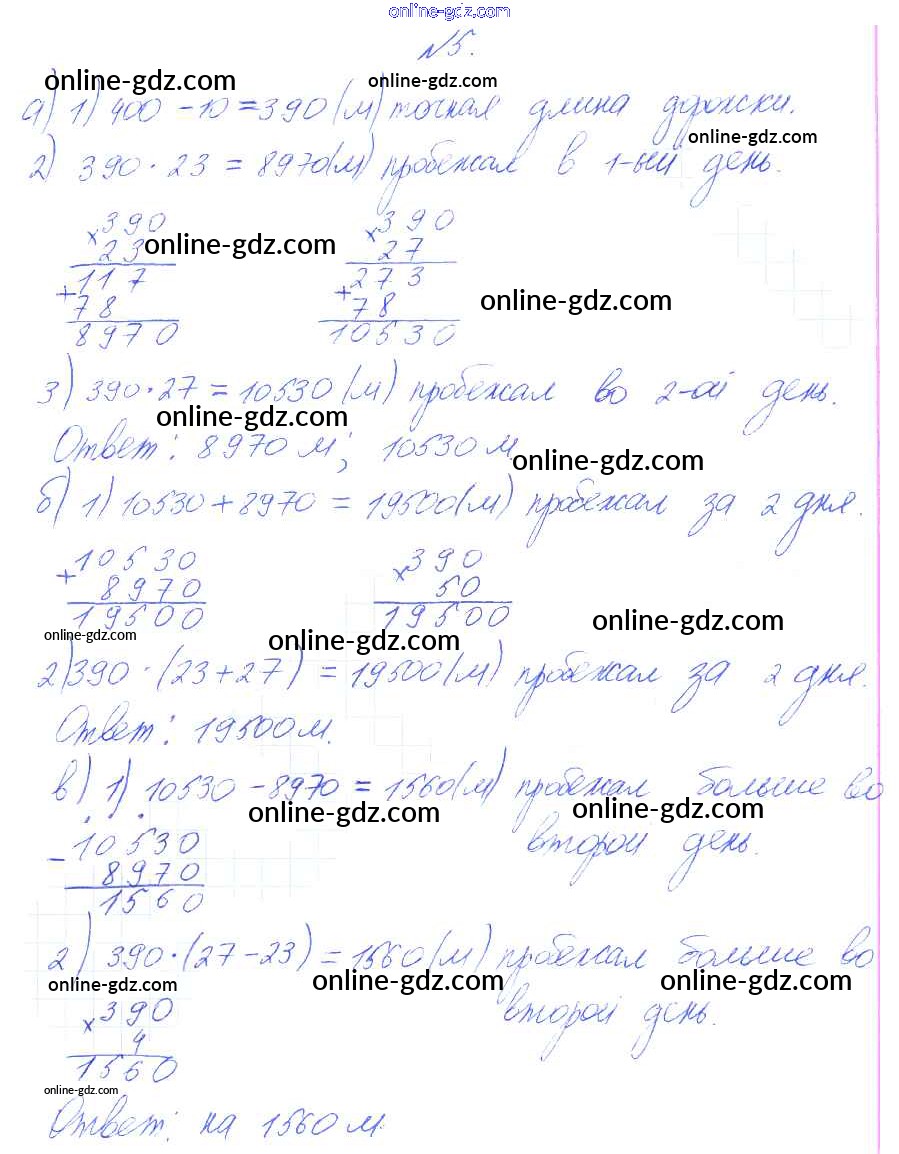 online-gdz.com
№5.
online-gdz.com online-gdz.com
а) 1) 400 - 10 = 390 (м) точная длина дорожки.
online-gdz.com
2) 390 · 23 = 8970 (м) пробежал в 1-ый день.
× 390 × 390
23 27
online-gdz.com
117 273
+ 78 + 78
online-gdz.com
8970 10530
3) 390 · 27 = 10530 (м) пробежал во 2-ой день.
online-gdz.com
Ответ: 8970 м; 10530 м.
online-gdz.com
б) 1) 10530 + 8970 = 19500 (м) пробежал за 2 дня.
+ 10530 × 390
8970 50
19500 19500
online-gdz.com
online-gdz.com online-gdz.com
2) 390 · (23 + 27) = 19500 (м) пробежал за 2 дня.
Ответ: 19500 м.
в) 1) 10530 - 8970 = 1560 (м) пробежал больше во
online-gdz.com online-gdz.com
второй день.
- 10530
8970
1560
2) 390 · (27 - 23) = 1560 (м) пробежал больше во
online-gdz.com online-gdz.com online-gdz.com
второй день.
× 390
4
1560
online-gdz.com
Ответ: на 1560 м.